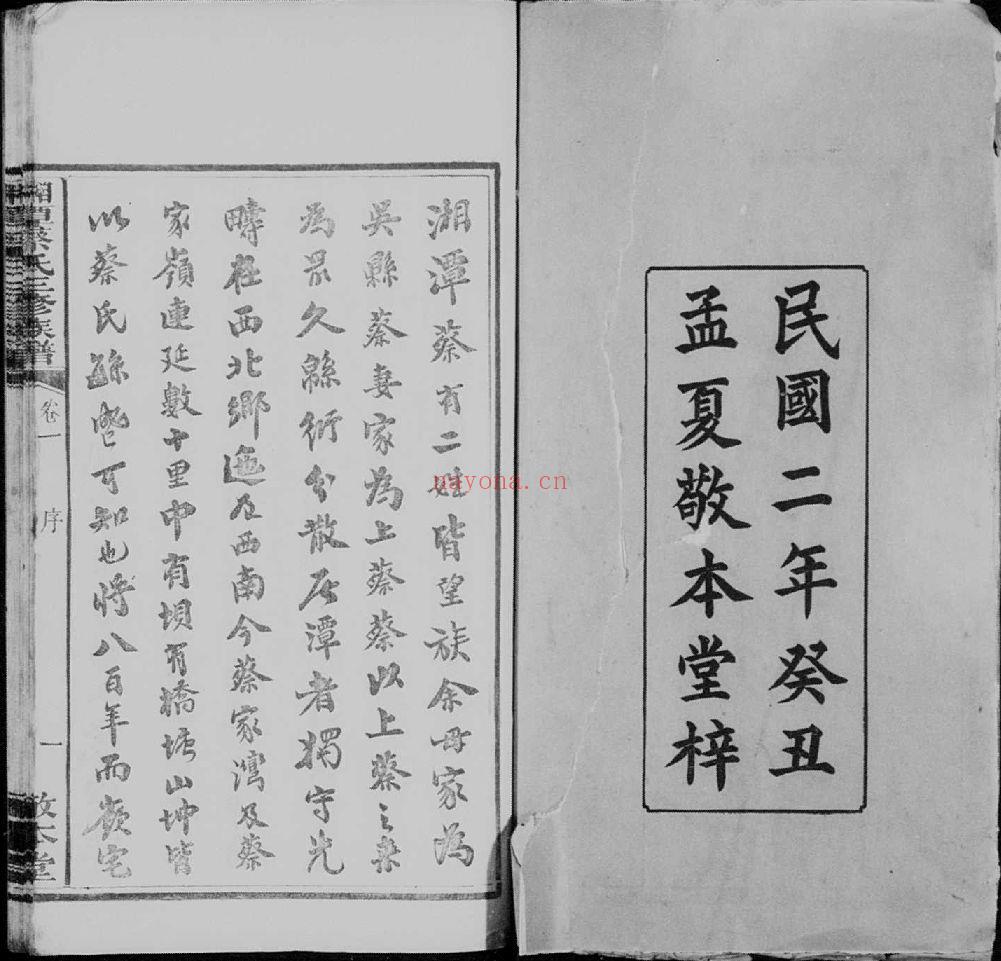 民國二年癸丑
孟夏敬本堂梓
湘潭蔡有二姓皆望族余母家為
吳縣蔡妻家為上蔡蔡以上蔡之来
為最久綿衍分散居潭者獨守先
疇在西北鄉迤及西南今蔡家灣及蔡
家嶺連延數十里中有垻有橋塘山坤皆
以蔡氏繇邕可知也將八百年而嶺宅
湘潭蔡氏三修族譜
卷一
序
一
敬本堂
nayona.cn